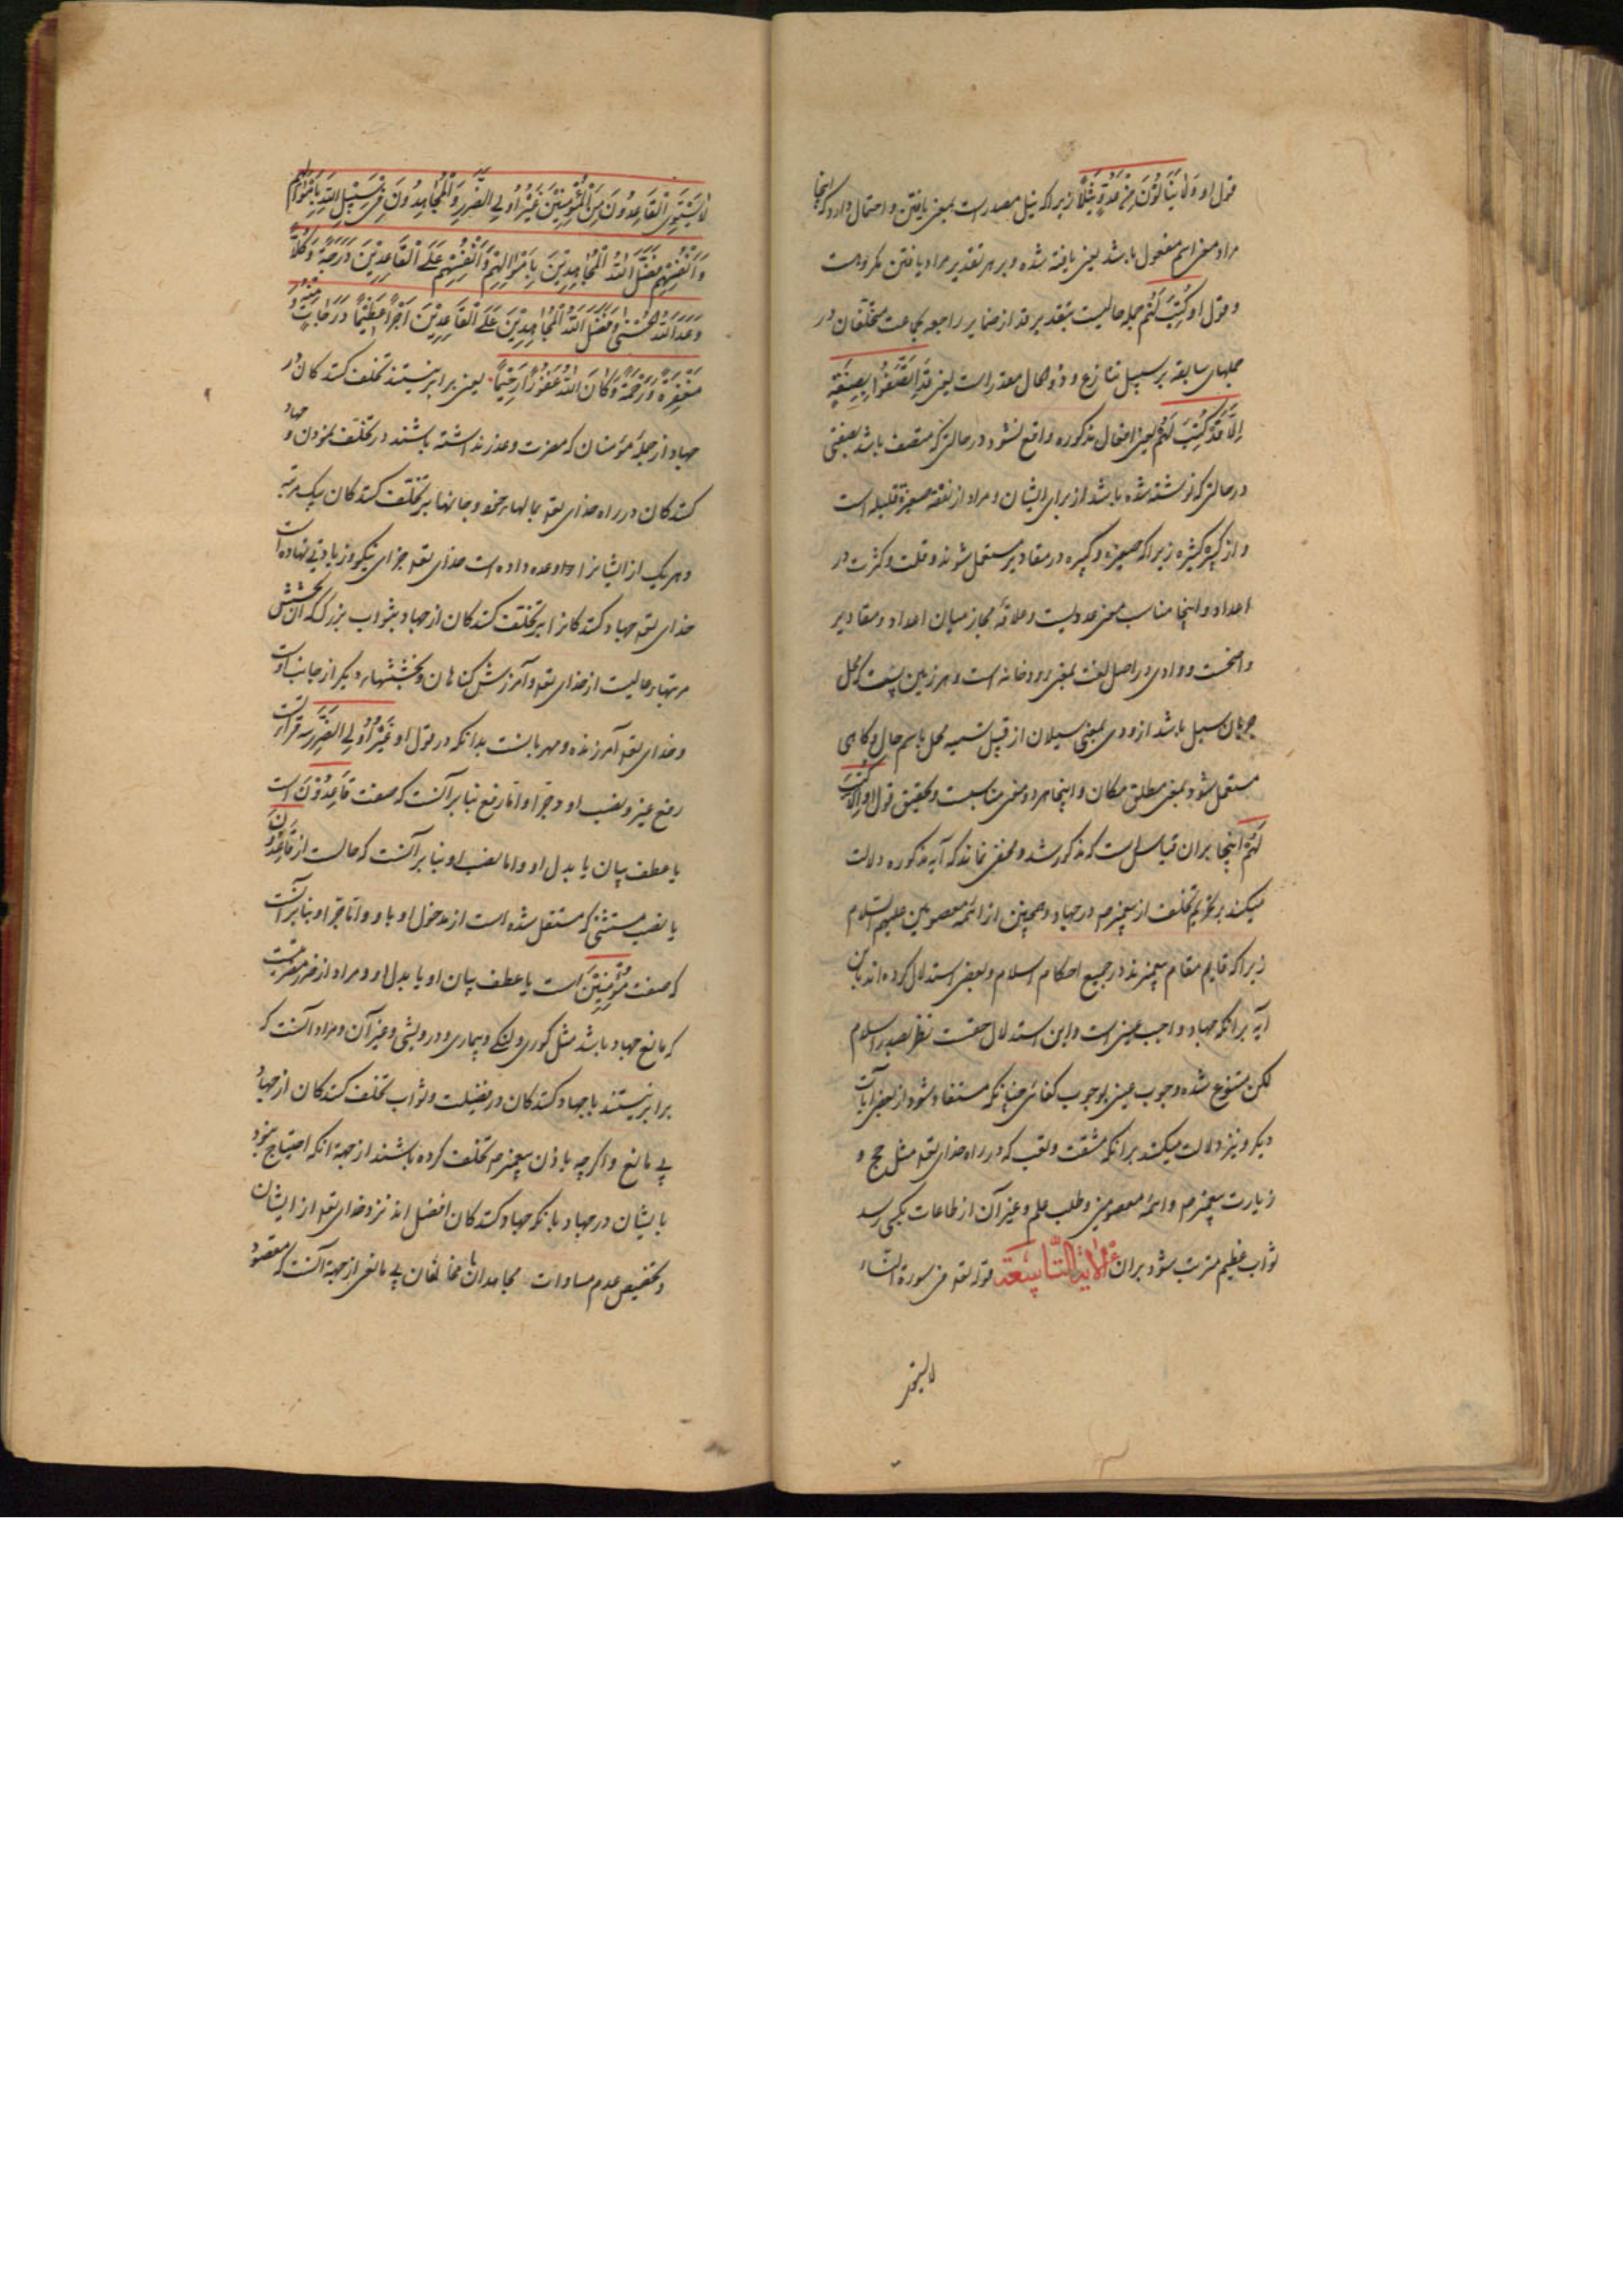 قول او وَلا یَنَالُونَ مِنْ عَدُوٍّ نَیْلاً زیرا که نیل مصدر است بمعنی یافتن و احتمال دارد که اینجا
مراد معنی اسم مفعول باشد یعنی یافته شده و بر هر تقدیر مراد یافتن مکروهست
و قول او کُتِبَ لَهُمْ جمله حالیست بتقدیر قد از ضمایر راجعه بجماعت متخلّفان در
جملهای سابقه بر سبیل تنازع و ذو الحال مقدر است یعنی
اِلاَّ قَدْ کُتِبَ لَهُمْ یعنی افعال مذکوره واقع نشود در حالتی که متصف باشد بصفتی
در حالتی که نوشته شده باشد از برای ایشان و مراد از نفقه صغیرة قلیله است
و از کبیره کثیره زیرا که صغیره و کبیره در مقادیر مستعمل شوند و قلت و کثرت در
اعداد و اینجا مناسب معنی عددیست و علاقهٔ مجاز میان اعداد و مقادیر
واضحست و وادی در اصل لغت بمعنی رودخانه است و هر زمین پست که محل
جریان سیل باشد از ودی بمعنی سیلان از قبیل تسمیه محل باسم حال و کاهی
مستعمل شود بمعنی مطلق مکان و اینجا هر دو معنی مناسبست و تحقیق قول او اِلاّ کُتِبَ
لَهُمْ اینجا بران قیاسست که مذکور شد و مخفی نماند که آیه مذکوره دلالت
میکند بر تحریم تخلف از پیغمبر ص در جهاد و همچنین از ائمه معصومین علیهم السلام
زیرا که قایم مقام پیغمبرند در جمیع احکام اسلام و بعضی استدلال کرده‌اند باین
آیه برانکه جهاد واجب عینی است و این استدلال حقست نظر بصدر اسلام
لکن منسوخ شده وجوب عینی بوجوب کفائی چنانکه مستفاد شود از بعضی آیات
دیکر و نیز دلالت میکند برانکه مشقت و تعب که در راه خدای تع مثل حج و
زیارت پیغمبر ص و ائمه معصومین و طلب علم و غیر آن از طاعات بکسی رسد
ثواب عظیم مترتب شود بران الآیة التّاسِعَة قوله تع فی سورة النساء
لا یستوی
لاٰ یَسْتَوِی الْقَاعِدُونَ مِنَ الْمُؤْمِنِیْنَ غَیْرُ اُولِی الضَّرَرِ وَالْمُجَاهِدُونَ فِی سَبِیْلِ اللّٰهِ بِاَمْوَالِهِمْ
وَاَنْفُسِهِمْ فَضَّلَ اللّٰهُ الْمُجَاهِدِیْنَ بِاَمْوَالِهِمْ وَاَنْفُسِهِمْ عَلَی الْقَاعِدِیْنَ دَرَجَةً وَکُلاًّ
وَعَدَ اللّٰهُ الْحُسْنٰی وَفَضَّلَ اللّٰهُ الْمُجَاهِدِیْنَ عَلَی الْقَاعِدِیْنَ اَجْراً عَظِیْماً دَرَجَاتٍ مِنْهُ وَ
مَغْفِرَةً وَرَحْمَةً وَکَانَ اللّٰهُ غَفُوْراً رَحِیْماً یعنی برابر نیستند تخلف کنندکان از
جهاد از جملهٔ مؤمنان که مضرت و عذر نداشته باشند در تخلف نمودن و جهاد
کنندکان در راه خدای تع بمالهای خود و جانها بر تخلف کنندکان بیک مرتبه
و هر یک از ایشانرا وعده داده است خدای تع جزای نیکو و زیادتی نهاده است
خدای تع جهاد کنندکانرا بر تخلف کنندکان از جهاد بثواب بزرک که آن بخشش
مرتبهای عالیست از خدای تع و آمرزش کناهان و بخششهای دیکر از جانب اوست
و خدای تع آمرزنده و مهربانست بدانکه در قول او غَیْرُ اُوْلِی الضَّرَرِ سه قرائتست
رفع غیر و نصب او و جرّ او اما رفع بنا بر آنست که صفت قَاعِدُوْنَ است
یا عطف بیان یا بدل او و اما نصب او بنا بر آنست که حالست از قَاعِدُوْنَ
یا نصب مستثنی که منتقل شده است از مدخول او باو و اما جرّ او بنا بر آنست
که صفت مُؤْمِنِیْنَ است یا عطف بیان او یا بدل او و مراد از ضرر مضرتیست
که مانع جهاد باشد مثل کوری و لنکی و بیماری و درویشی و غیر آن و مراد آنست که
برابر نیستند با جهاد کنندکان در فضیلت و ثواب تخلف کنندکان از جهاد
بی مانع و اکرچه باذن پیغمبر ص تخلف کرده باشند از جهة انکه احتیاج نبود
بایشان در جهاد بانکه جهاد کنندکان افضل اند نزد خدای تع از ایشان
و تخصیص عدم مساوات مجاهدان با متخلفان بی مانعی از جهة آنست که مقصود